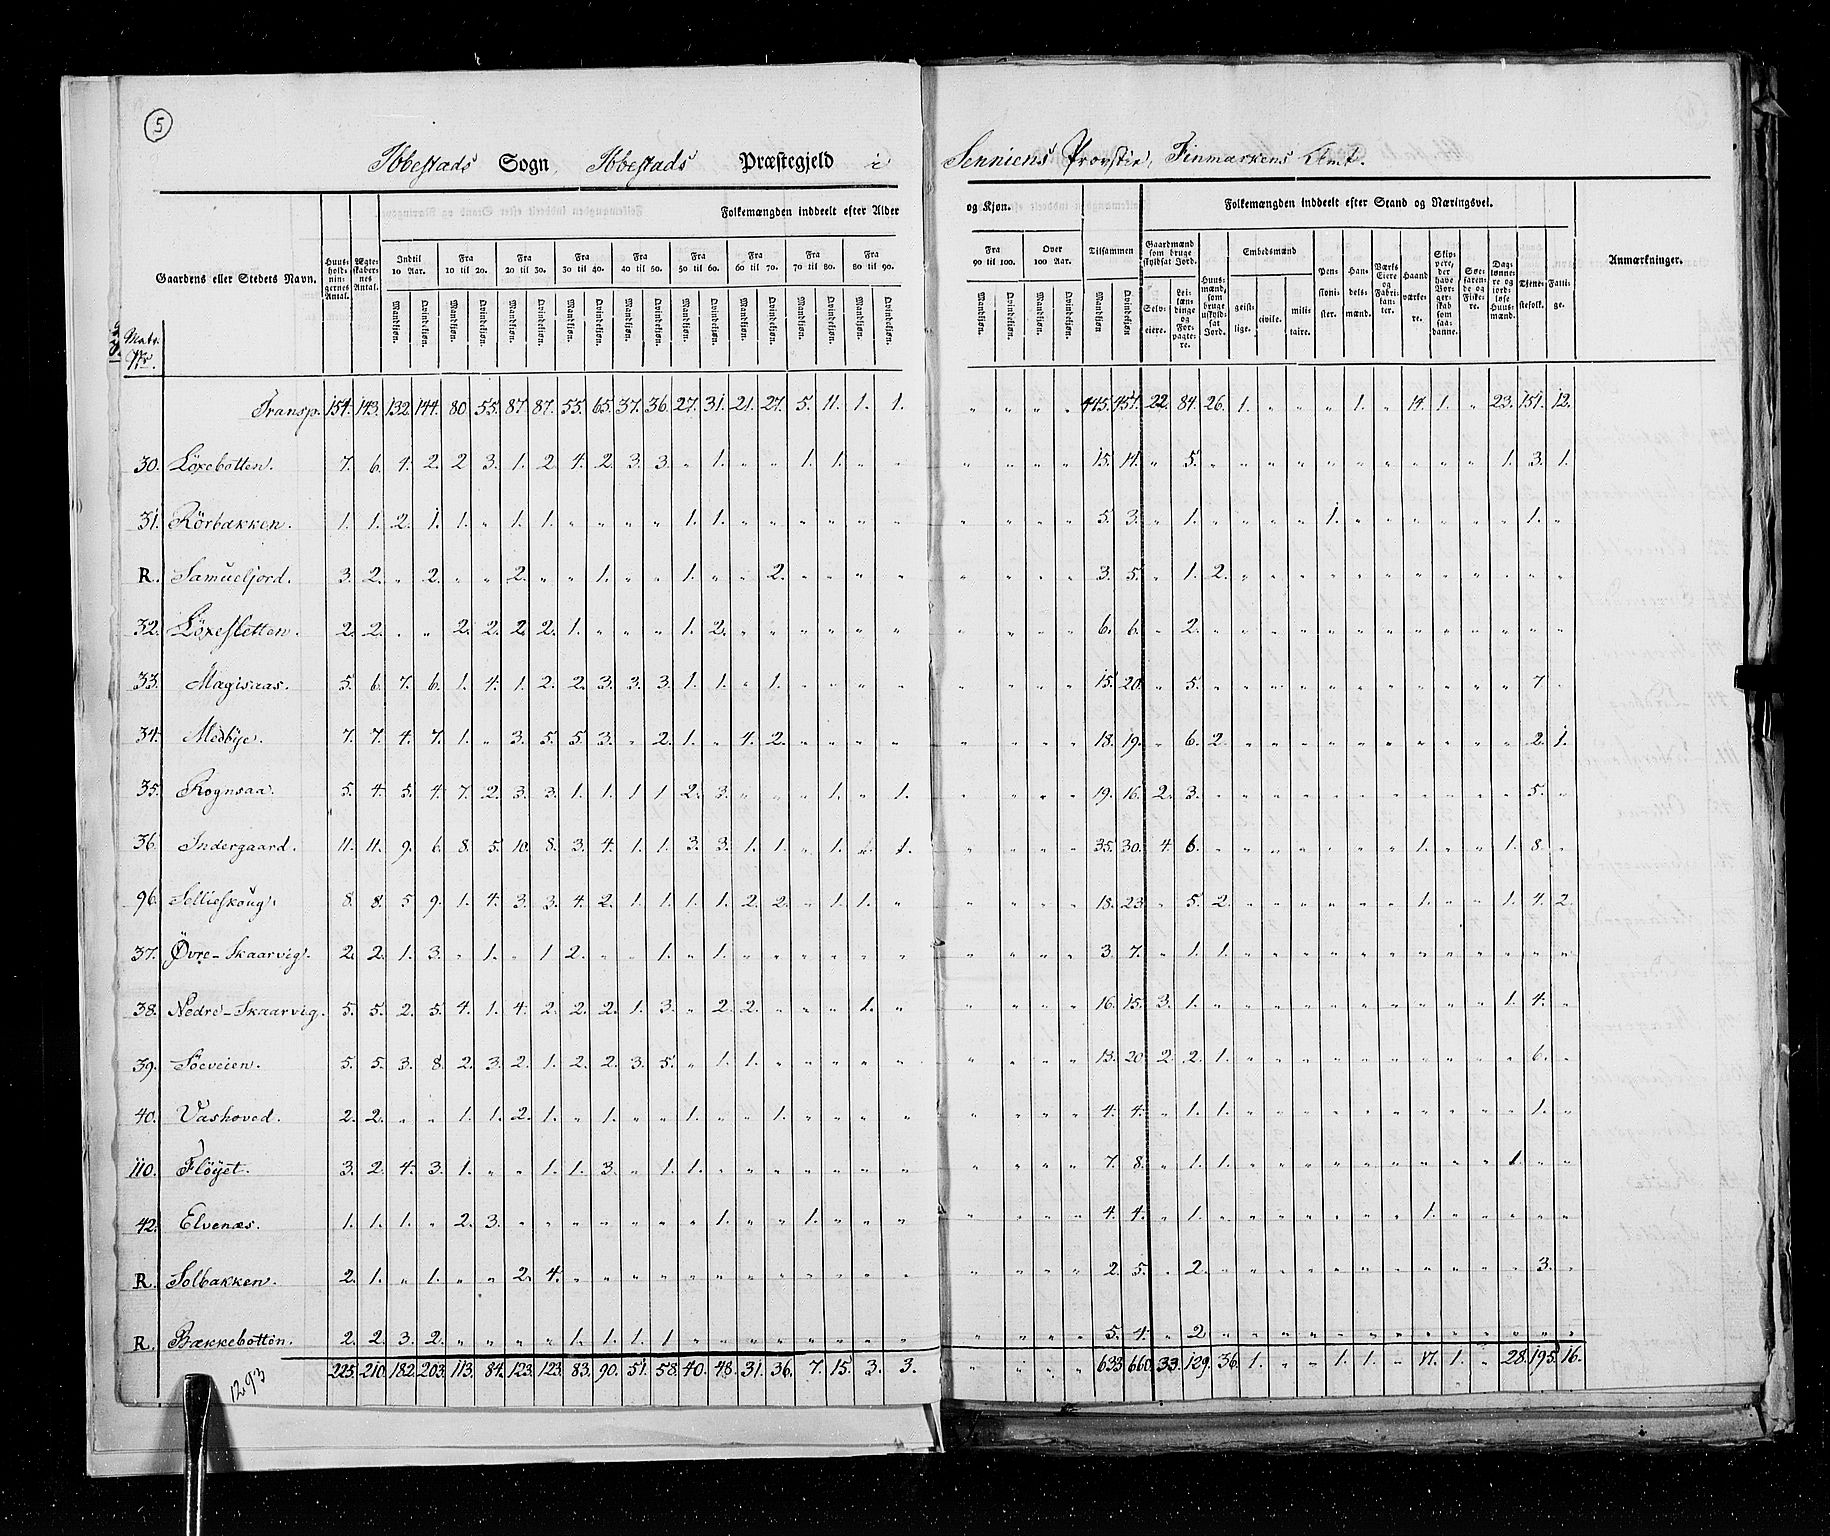 5
Ibbestads Sogn, Ibbestads Præstegjeld i Senniens Provstie, Finmarkens Amt.
Gaardens eller Steders Navn. Huusholdningernes Antal. Ægteskabernes Antal. Folkemængden inddeelt efter Alder og Kjøn. Folkemængden inddeelt efter Stand og Næringsvei. Anmærkninger.
Indtil 10 Aar. Fra 10 til 20. Fra 20 til 30. Fra 30 til 40. Fra 40 til 50. Fra 50 til 60. Fra 60 til 70. Fra 70 til 80. Fra 80 til 90. Fra 90 til 100. Over 100 Aar. Tilsammen
Gaardmænd som bruge skyldsat Jord. Huusmænd, som bruge uskyldsat Jord. Embedsmænd Pensionister. Handelsmænd. Værks Eiere og Fabrikanter. Haandværkere. Skippere, der have Borgerskab som saadanne. Søefarende og Fiskere. Daglønnere og jordløse Huusmænd. Tjenestefolk. Fattige.
Mandkjøn. Qvindekjøn. Selveiere. Leilændinge og Forpagtere. geistlige. civile. militaire.
Matr. Nr.
Transp. 154. 143. 132. 144. 80 55. 87. 87. 55. 65. 37. 36. 27. 31. 21. 27. 5. 11. 1. 1. " " " " 445. 457. 22. 84. 26. 1. " " " 1. " 14. 1. " 23. 151. 12.
30. Löxebotten. 7. 6. 4. 2. 2 3. 1. 2 4. 2. 3. 3. " 1. " " 1. 1. " " " " " " 15. 14. " 5. " " " " " " " " " " 1. 3. 1.
31. Rörbakken. 1. 1. 2. 1. 1. " 1. 1. " " " " 1. 1. " " " " " " " " " " 5. 3. " 1. " " " " 1. " " " " " " 1. "
R. Samueljord. 3. 2. " 2. " " 2. " " 1. " " 1. " " 2. " " " " " " " " 3. 5. " 1. 2. " " " " " " " " " " " "
32. Löxesletten. 2. 2. " " 2. 2. 2. 2. 1. " " " 1. 2. " " " " " " " " " " 6. 6. " 2. " " " " " " " " " " " " "
33. Magisaas. 5. 6. 7. 6. 1. 4. 1. 2. 2. 3. 3. 3. 1. 1. " 1. " " " " " " " " 15. 20. " 5. " " " " " " " " " " " 7 "
34. Medbye. 7. 7. 4. 7. 1. " 3. 5. 5. 3. " 2. 1. " 4. 2. " " " " " " " " 18. 19. " 6. 2. " " " " " " " " " " 2. 1.
35. Rognsaa. 5. 4. 5. 4. 7. 2. 3. 3. 1. 1. 1. 1 2. 3. " " " 1. " 1. " " " " 19. 16. 2. 3. " " " " " " " " " " " 5. "
36. Indergaard. 11. 11. 9. 6. 8. 5. 10. 8. 3. 4. 1. 1. 3. 3. 1. 1. " 1. " 1. " " " " 35. 30. 4. 6. " " " " " " " 1. " " 1. 8. "
96. Sellieskoug. 8. 8. 5 9. 1. 4. 3. 3. 4. 2. 1. 1. 1. 1. 2. 2. " 1. 1. " " " " " 18. 23. " 5. 2. " " " " " " 1. " " 1. 4. 2.
37. Övre-Skaarvig. 2. 2. 1. 3. " 1. " 1 2. " " 1. " 1. " " " " " " " " " " 3. 7. " 1. 1. " " " " " " " " " " " "
38. Nedre-Skaarvig. 5. 5. 2. 5. 4. 1. 4. 2. 2. 2. 1. 3. " 2. 2. " " " 1. " " " " " 16. 15. 3. 1. " " " " " " " " " " 1. 4. "
39. Söeveien. 5. 5. 3. 8. 2. 3. 2. 1. 2. 2. 3. 5. " 1. 1. " " " " " " " " " 13. 20. 2. 2. 1. " " " " " " " " " " 6. "
40. Vashoved. 2. 2. " " 1. 1. 2. 1. " 1. " " 1. " " 1. " " " " " " " " 4. 4. " 1. 1. " " " " " " " " " " 1. "
110. Flöyet. 3. 2. 4. 3. 1. " " 1. 1. 3. " 1. 1. " " " " " " " " " " " 7. 8. " 1. 1. " " " " " " " " " 1. " "
42. Elvenæs. 1. 1. 1. " 2. 3. " " " " " " " 1. " " 1. " " " " " " " 4. 4. " 1. " " " " " " " 1. " " " " "
R. Solbakken. 2. 1. " 1. " " 2. 4. " " " " " " " " " " " " " " " " 2. 5. " 2. " " " " " " " " " " " 3. "
R. Bækkebotten. 2. 2. 3. 2. " " " " 1. 1. 1. 1 " " " " " " " " " " " " 5. 4. " 2 " " " " " " " " " " " " "
225. 210. 182. 203. 113. 84. 123. 123. 83. 90. 51. 58. 40. 48. 31. 36. 7. 15. 3. 3. " " " " 633. 660. 33. 129. 36. 1. " " 1. 1. " 17. 1. " 28. 195. 16.
1293